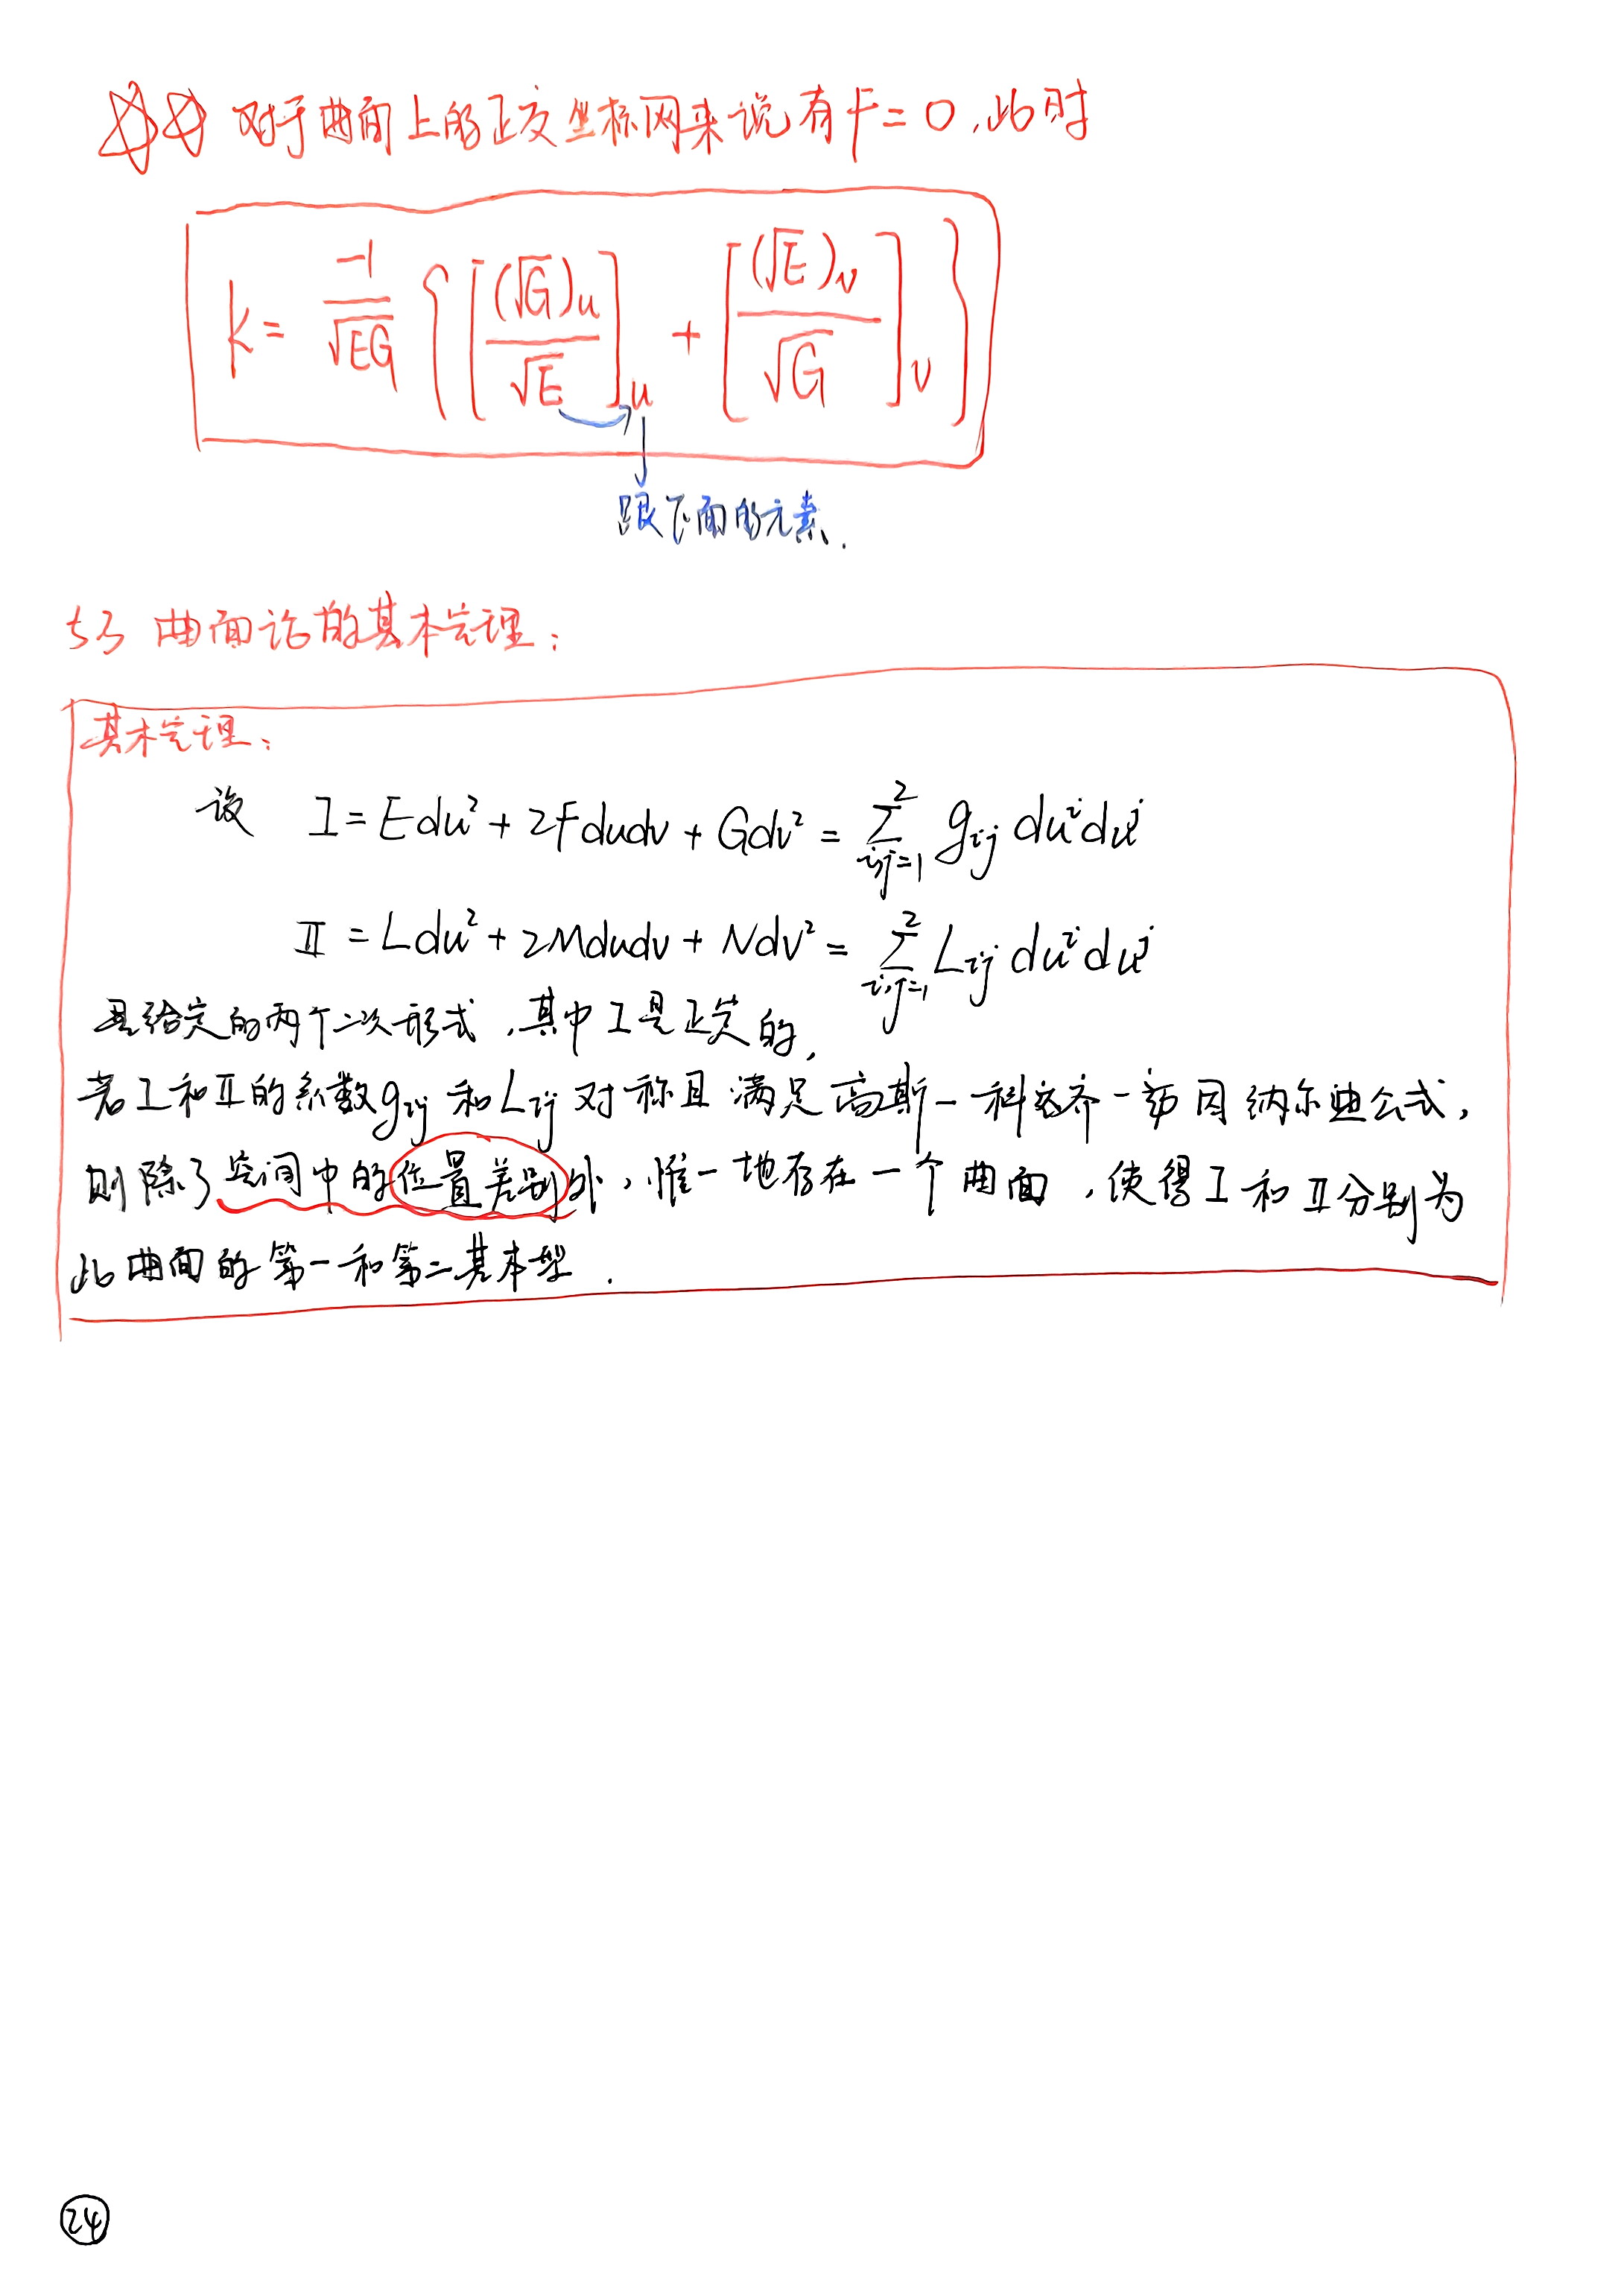 对于曲面上的正交坐标网来说有F=0,此时
K= -1/√EG { [ (√G)u / √E ]u + [ (√E)v / √G ]v }
跟下面的元素.
5.3 曲面论的基本定理:
基本定理:
设 I=Edu²+2Fdudv+Gdv²=∑²ᵢ,ⱼ₌₁ gᵢⱼ duⁱduʲ
II=Ldu²+2Mdudv+Ndv²=∑²ᵢ,ⱼ₌₁ Lᵢⱼ duⁱduʲ
是给定的两个二次形式,其中I是正定的,
若I和II的系数gᵢⱼ和Lᵢⱼ对称且满足高斯-科达齐-迈因纳尔迪公式,
则除了空间中的位置差别外,惟一地存在一个曲面,使得I和II分别为
此曲面的第一和第二基本型.
24